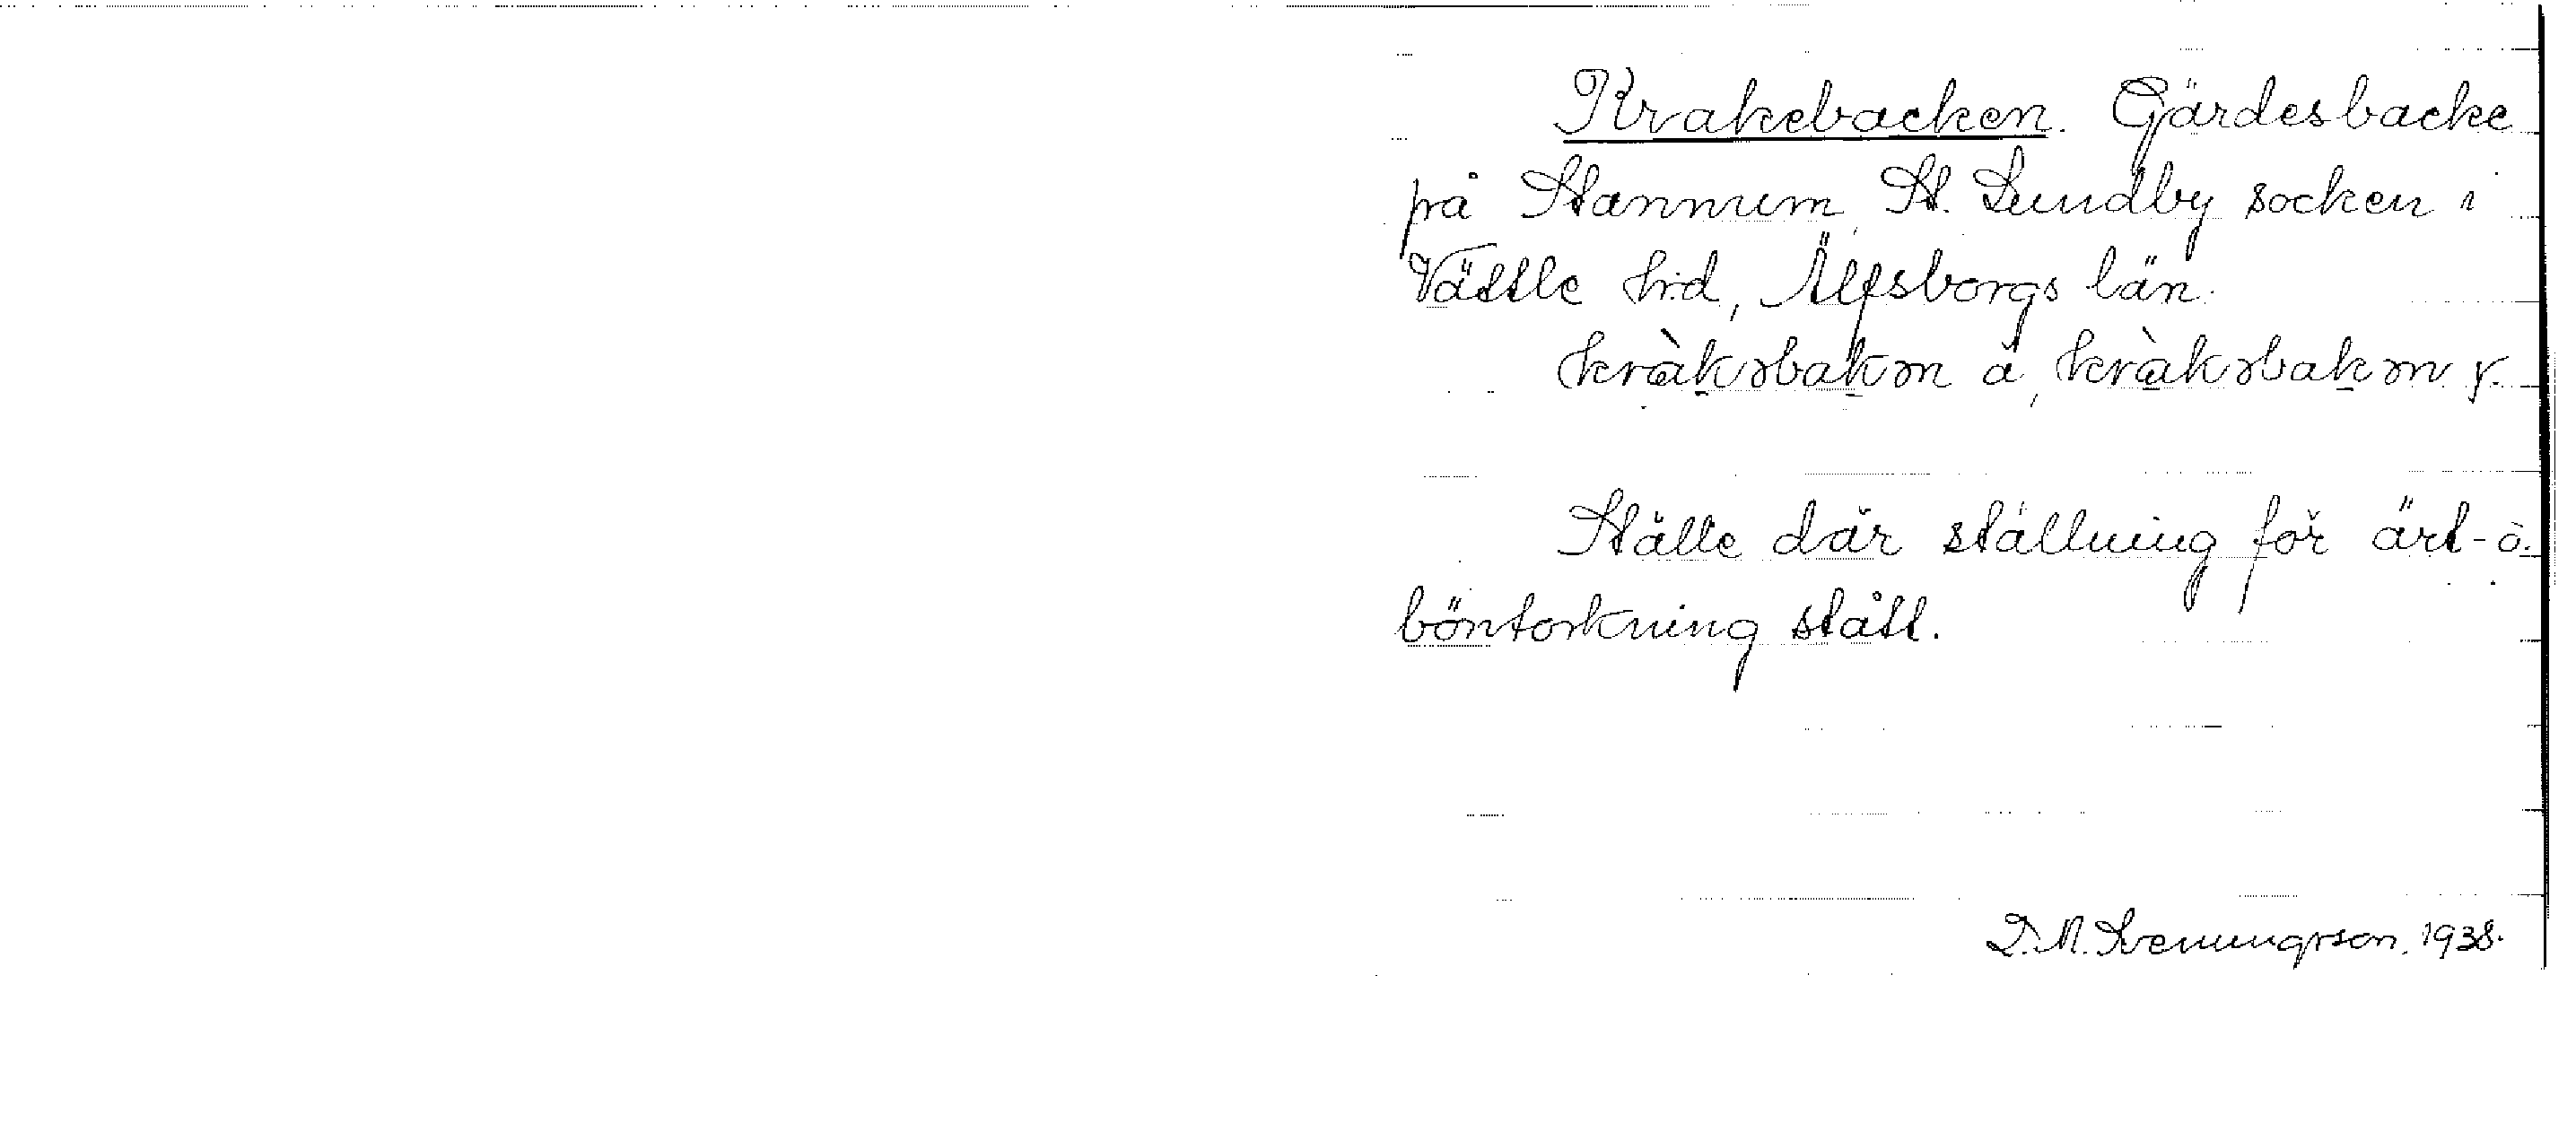 Krakebacken. Gärdesbacke
på Stannum, St. Lundby socken i
Vättle h:d, Älfsborgs län.
kràkəbakən ä, kràkəbakən y.
Ställe där ställning för ärt- o.
böntorkning stått.
D. M. Svenungsson. 1938.